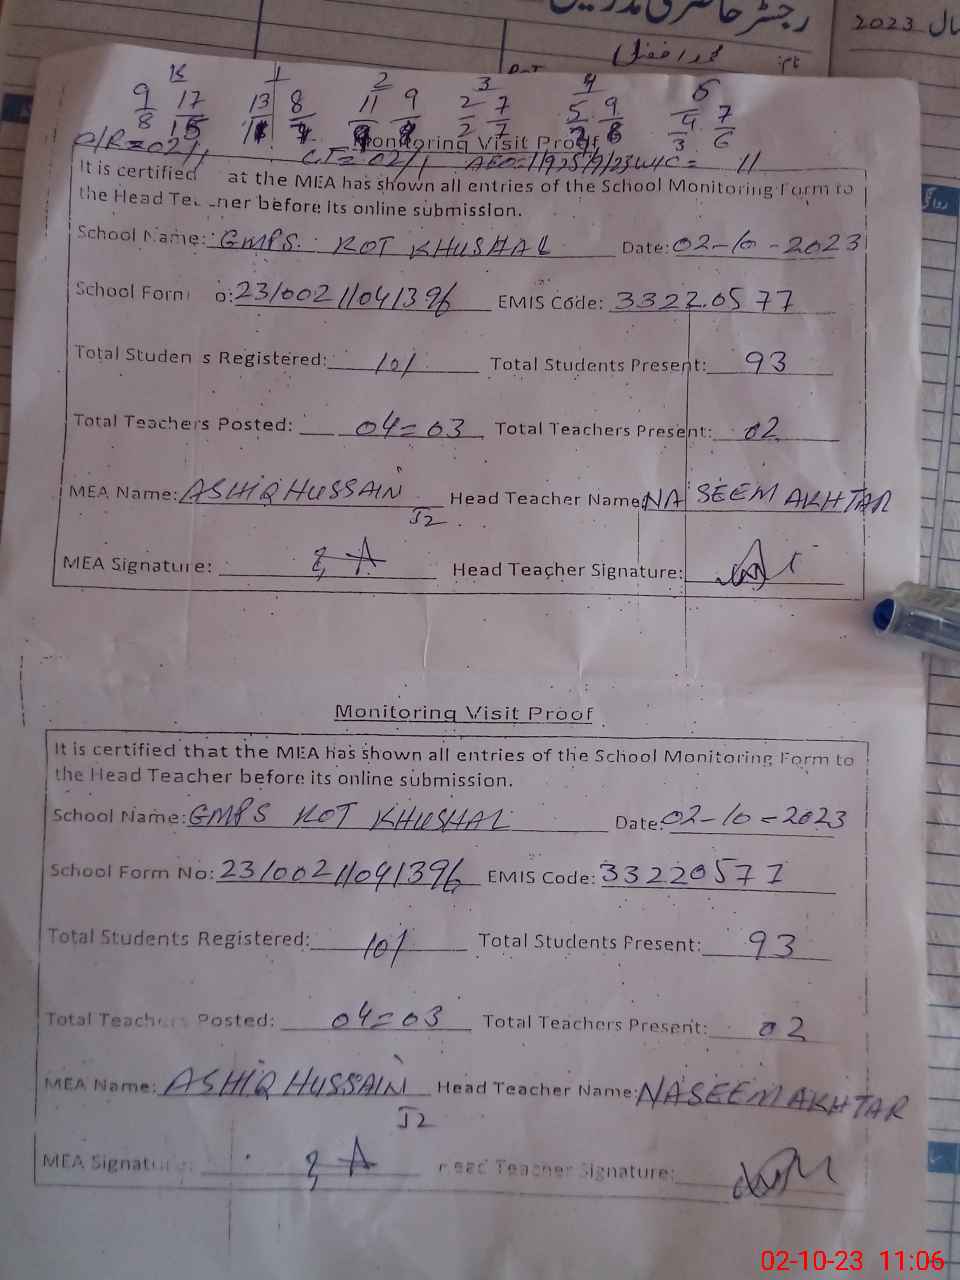 رجسٹر حاضری مدرسین
سال 2023
نام:
K 1 2 3 4 5
9 17 13 8 11 9 2 7 5 9 4 7
8 2 7 3 6
Monitoring Visit Proof
It is certified at the MEA has shown all entries of the School Monitoring Form to
the Head Te ner before its online submission.
School Name: GMPS. KOT KHUSHAL Date: 02-10-2023
School Form o: 23100211041396 EMIS Code: 33220577
Total Studen s Registered: 101 Total Students Present: 93
Total Teachers Posted: 04=03 Total Teachers Present: 02
MEA Name: ASHIQ HUSSAIN Head Teacher Name NASEEM AKHTAR
J2
MEA Signature: Head Teacher Signature:
Monitoring Visit Proof
It is certified that the MEA has shown all entries of the School Monitoring Form to
the Head Teacher before its online submission.
School Name: GMPS KOT KHUSHAL Date: 02-10-2023
School Form No: 23100211041396 EMIS Code: 33220577
Total Students Registered: 101 Total Students Present: 93
Total Teachers Posted: 04=03 Total Teachers Present: 02
MEA Name: ASHIQ HUSSAIN Head Teacher Name: NASEEM AKHTAR
J2
MEA Signature: Head Teacher Signature:
02-10-23 11:06